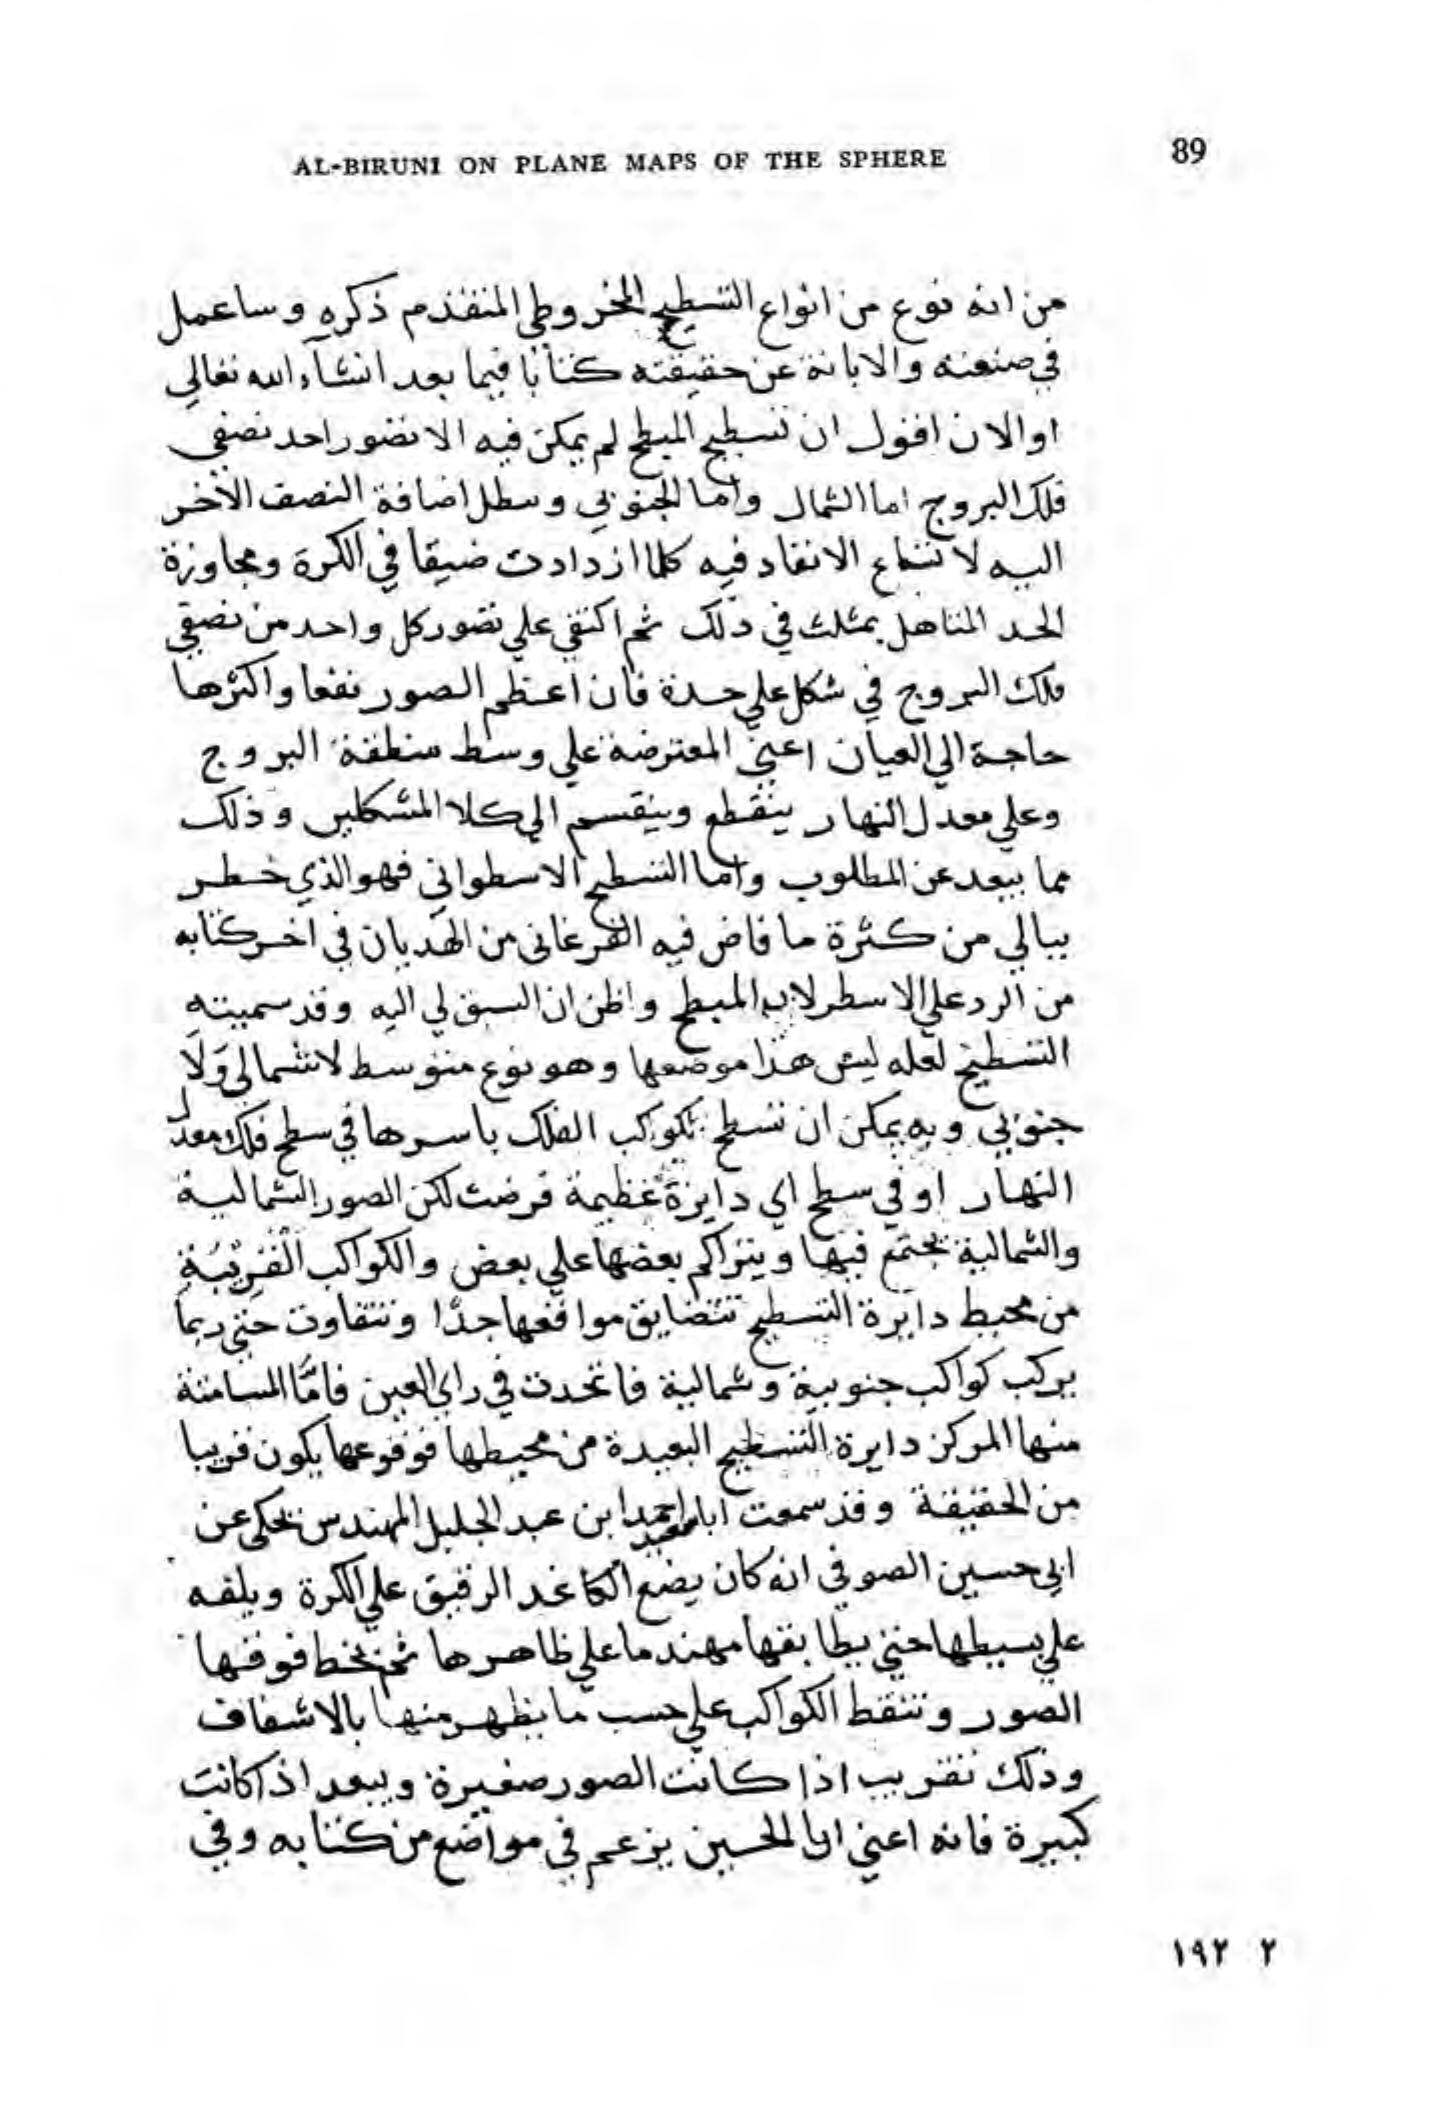 AL-BIRUNI ON PLANE MAPS OF THE SPHERE 89
من انه نوع من انواع التسطيح المخروطي المتقدم ذكره وساعمل
في صنعته والابانة عن حقيقته كتابا فيما بعد انشآء الله تعالي
اوالان اقول ان تسطيح المبطح لم يمكن فيه الا تصور احد نصفي
فلك البروج اما الشمال واما الجنوبي وسطل اضافة النصف الاخر
اليه لا تساع الانقاد فيه كلما ازدادت ضيقا في الكرة ومجاوزة
الحد المتاهل بمثلث في ذلك ثم اكتفي علي تصور كل واحد من نصفي
فلك البروج في شكل علي حدة فان اعظم الصور نفعا واكثرها
حاجة الي العيان اعني المعترضة علي وسط منطقة البروج
وعلي معدل النهار ينقطع وينقسم الي كلا المشكلين وذلك
مما يبعد عن المطلوب واما التسطيح الاسطواني فهو الذي خطر
ببالي من كثرة ما فاض فيه الفرغاني من الهديان في اخر كتابه
من الرد علي الاسطرلاب المبطح واظن ان السبق لي اليه وقد سميته
التسطيح لعله ليس هذا موضعها وهو نوع متوسط لا شمالي وَلَا
جنوبي وبه يمكن ان تسطح كواكب الفلك باسرها في سطح فلك معدل
النهار او في سطح اي دايرة عظيمة فرضت لكن الصور الشمالية
والشمالية تجتمع فيها ويتراكم بعضها علي بعض والكواكب القريبة
من محيط دايرة التسطيح تتضايق مواقعها جدًّا وتتفاوت حتي ربما
يركب كواكب جنوبية وشمالية فاتحدت في راي العين فامَّا المسامتة
منها المركز دايرة التسطيح البعيدة من محيطها فوقوعها يكون قريبا
من الحقيقة وقد سمعت ابا احمد ابن عبد الجليل المهندس يحكي عن
ابي حسين الصوفي انه كان يضع الكاغد الرقيق علي الكرة ويلفه
علي بسيطها حتي يطابقها مهندما علي ظاهرها ثم يخط فوقها
الصور وتنقط الكواكب علي حسب ما يظهر منها بالاشفاف
وذلك تقريب اذا كانت الصور صغيرة ويبعد اذا كانت
كبيرة فانه اعني ابا الحسين يزعم في مواضع من كتابه وفي
١٩٢ ٢